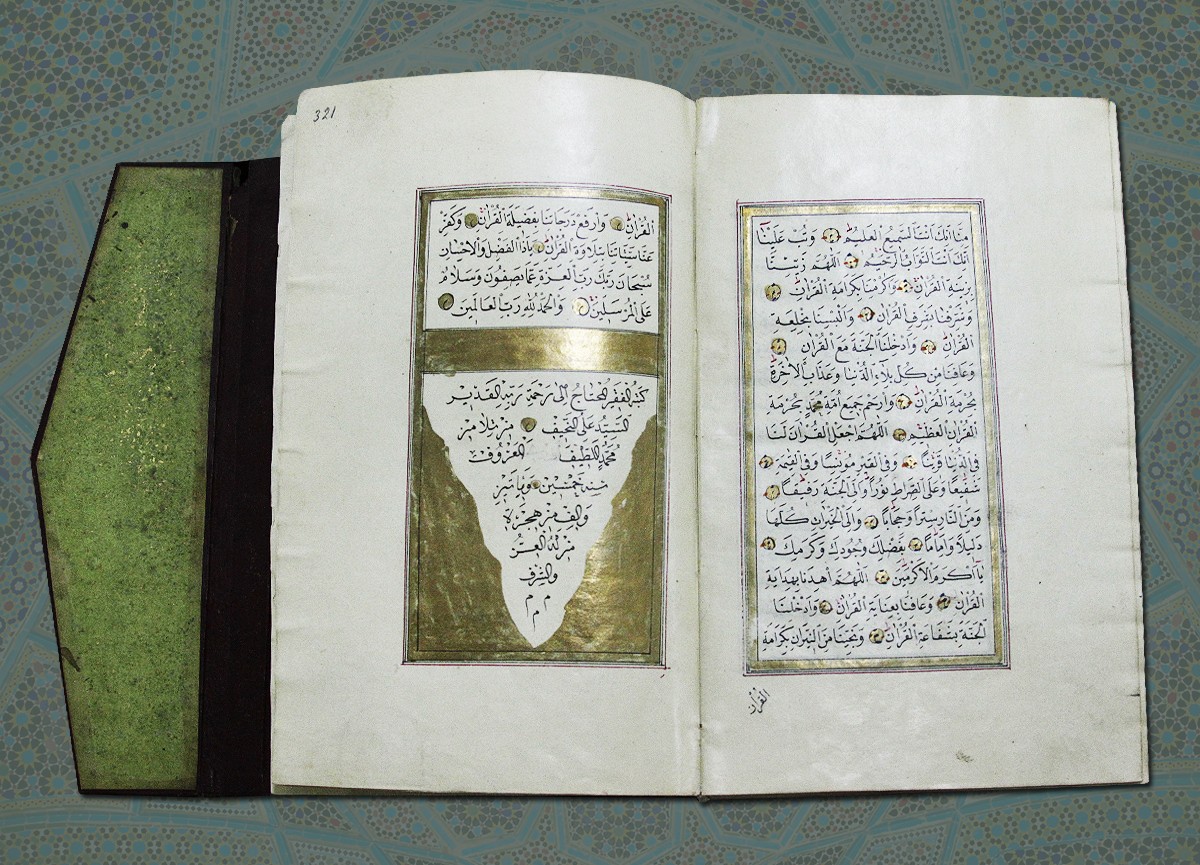 منا انك انت السميع العليم وتب علينا
انك انت التواب الرحيم اللهم زينا
بزينة القرآن وكرمنا بكرامة القرآن
وشرفنا بشرف القرآن والبسنا بخلعة
القرآن وادخلنا الجنة مع القرآن
وعافنا من كل بلاء الدنيا وعذاب الآخرة
بحرمة القرآن وارحم جميع امة محمد بحرمة
القرآن العظيم اللهم اجعل القرآن لنا
فى الدنيا قرينا وفى القبر مونسا وفى القيمة
شفيعا وعلى الصراط نورا والى الجنة رفيقا
ومن النار سترا وحجابا والى الخيرات كلها
دليلا واماما بفضلك وجودك وكرمك
يا اكرم الاكرمين اللهم اهدنا بهداية
القرآن وعافنا بعناية القرآن وادخلنا
الجنة بشفاعة القرآن ونجينا من النيران بكرامة
القرآن
321
القرآن وارفع درجاتنا بفضيلة القرآن وكفر
عنا سيئاتنا بتلاوة القرآن ياذا الفضل والاحسان
سبحان ربك رب العزة عما يصفون وسلام
على المرسلين والحمد لله رب العالمين
كتبه الفقير المحتاج الى رحمة ربه القدير
السيد على النحيف من تلامذ
محمد اللطيف المعروف
سنه خمسين ومايتين
والف من هجرة
من له العز
والشرف
م م م